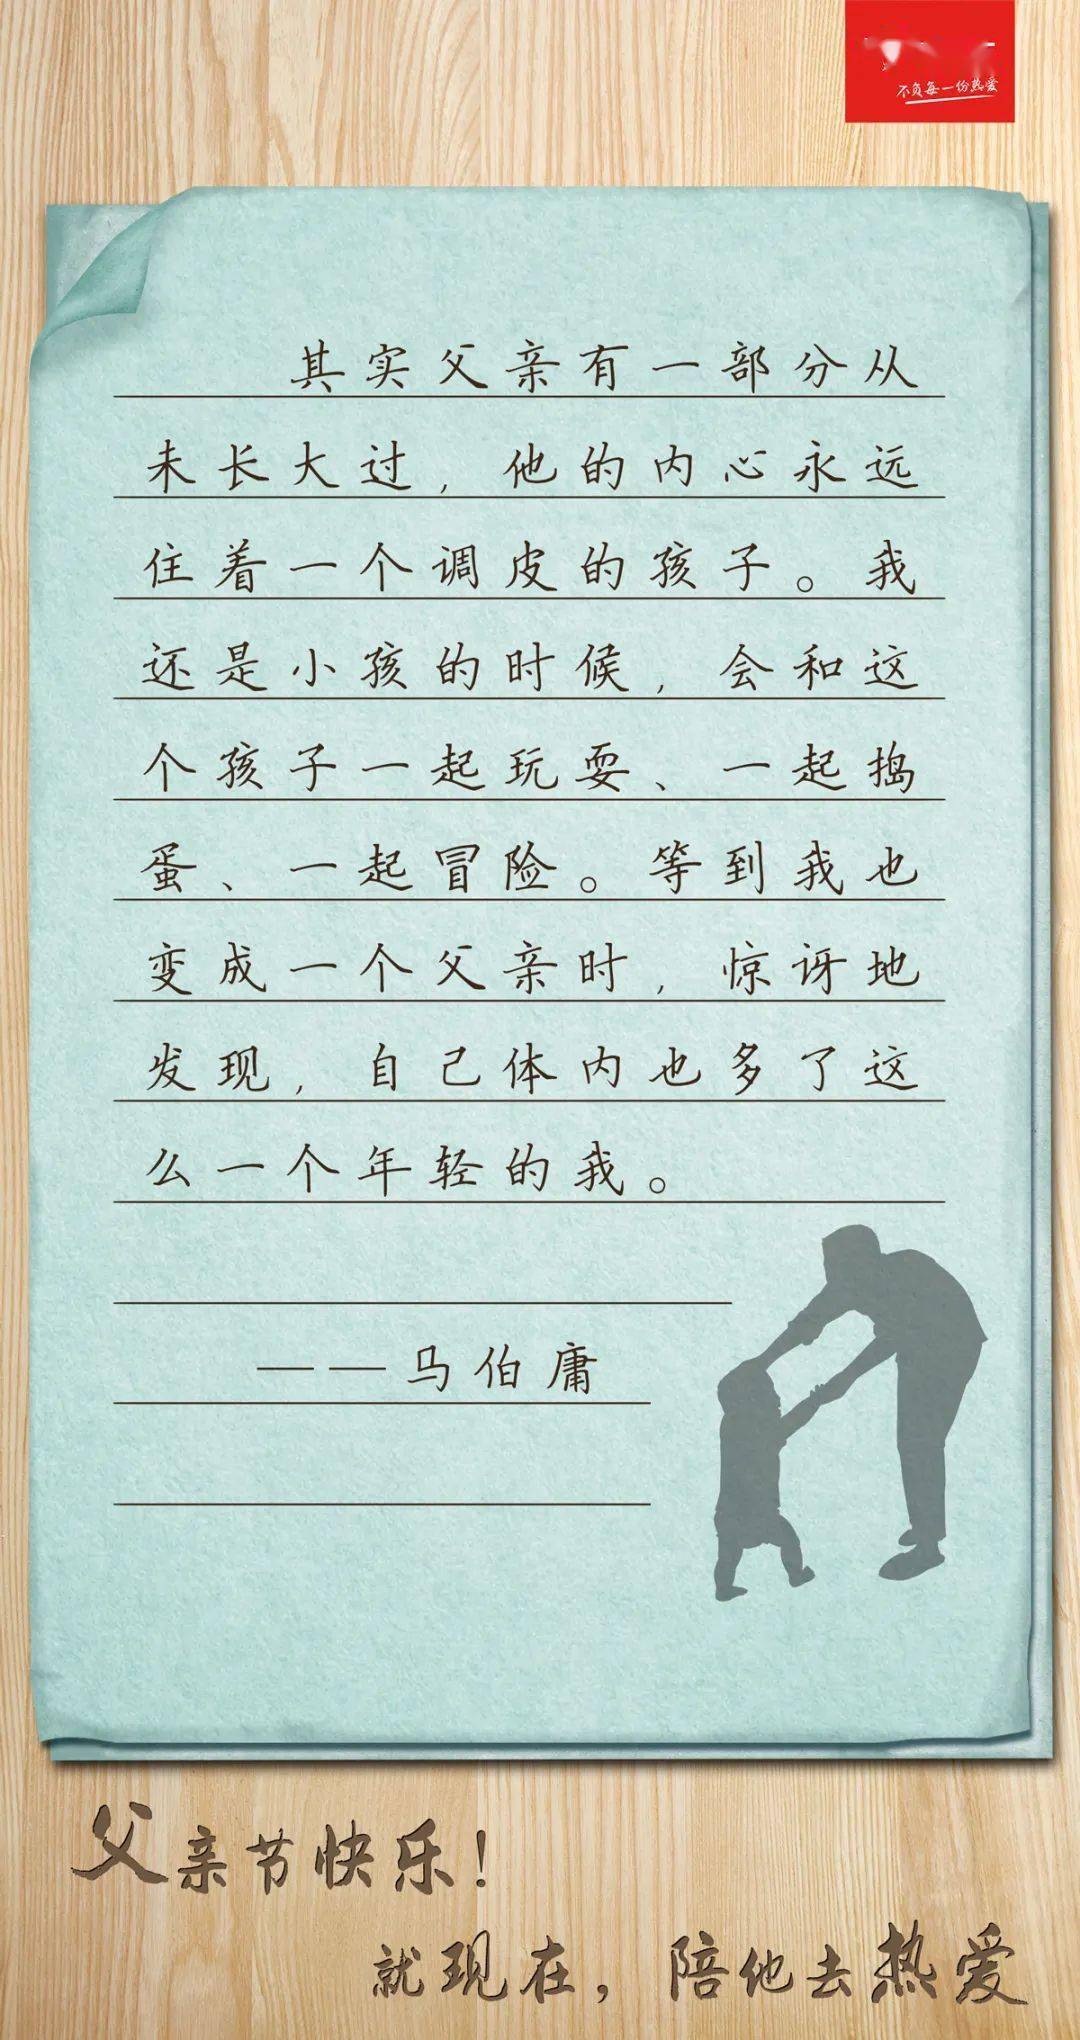 不负每一份热爱
其实父亲有一部分从
未长大过，他的内心永远
住着一个调皮的孩子。我
还是小孩的时候，会和这
个孩子一起玩耍、一起捣
蛋、一起冒险。等到我也
变成一个父亲时，惊讶地
发现，自己体内也多了这
么一个年轻的我。
——马伯庸
父亲节快乐！
就现在，陪他去热爱